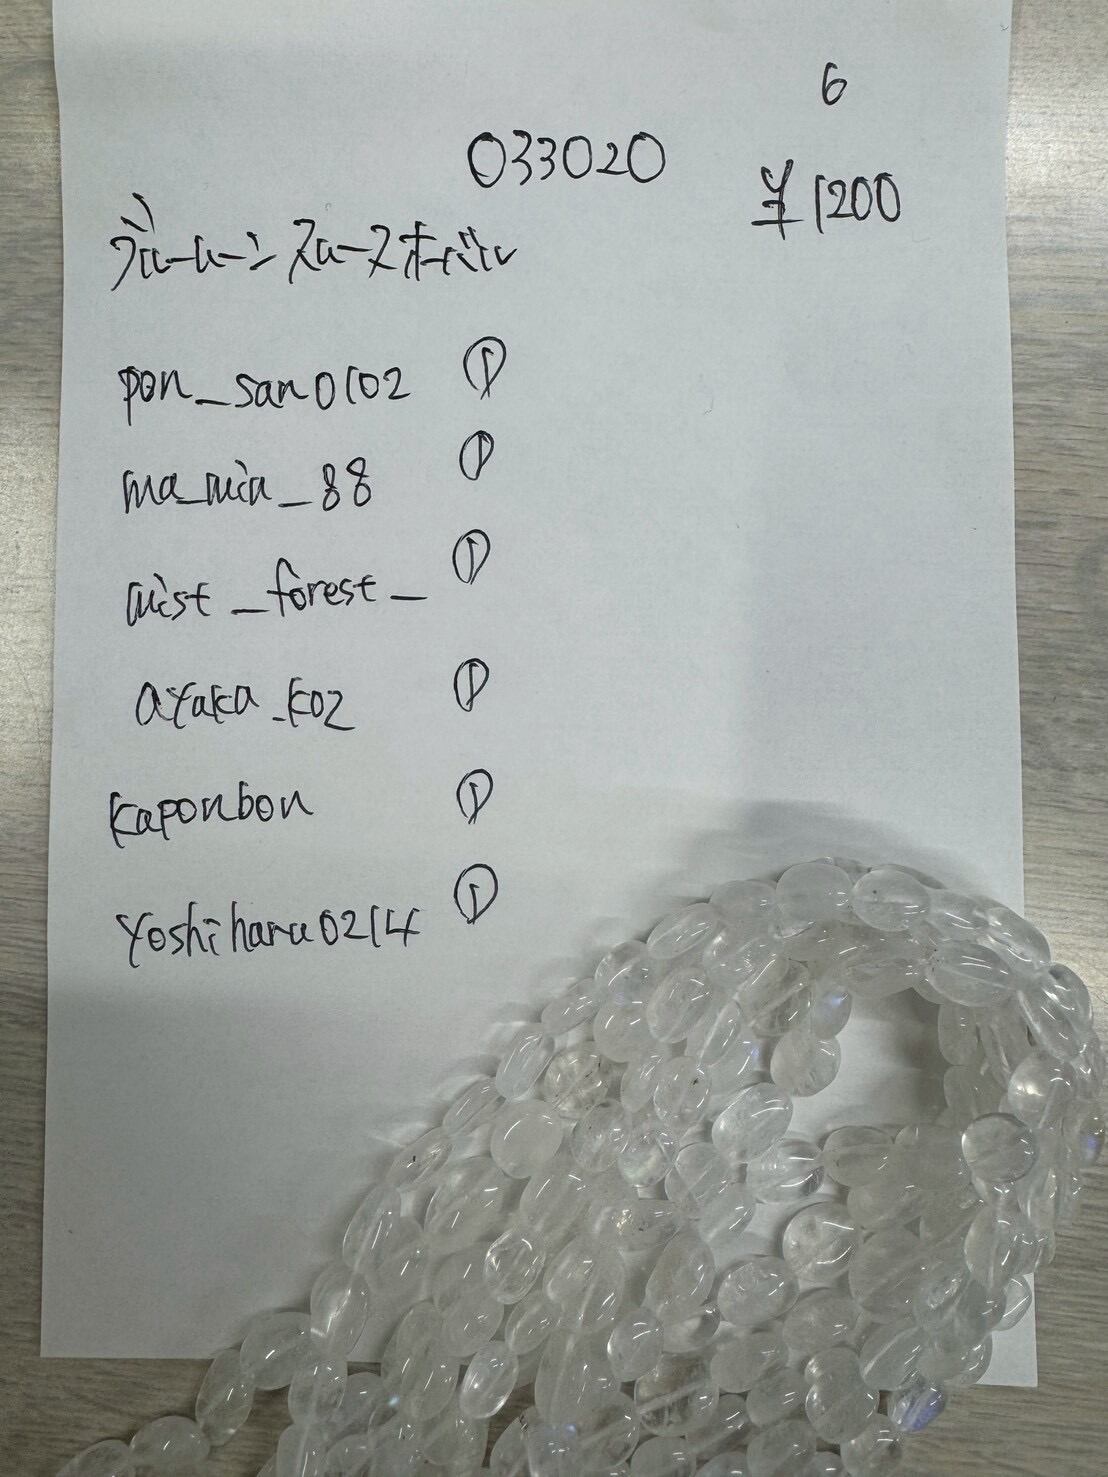 6
033020
¥1200
ブルームーン スムースオーバル
pon_san0102 ①
ma_min_88 ①
mist_forest_ ①
ayaka_k02 ①
kaponbon ①
yoshiharu0214 ①